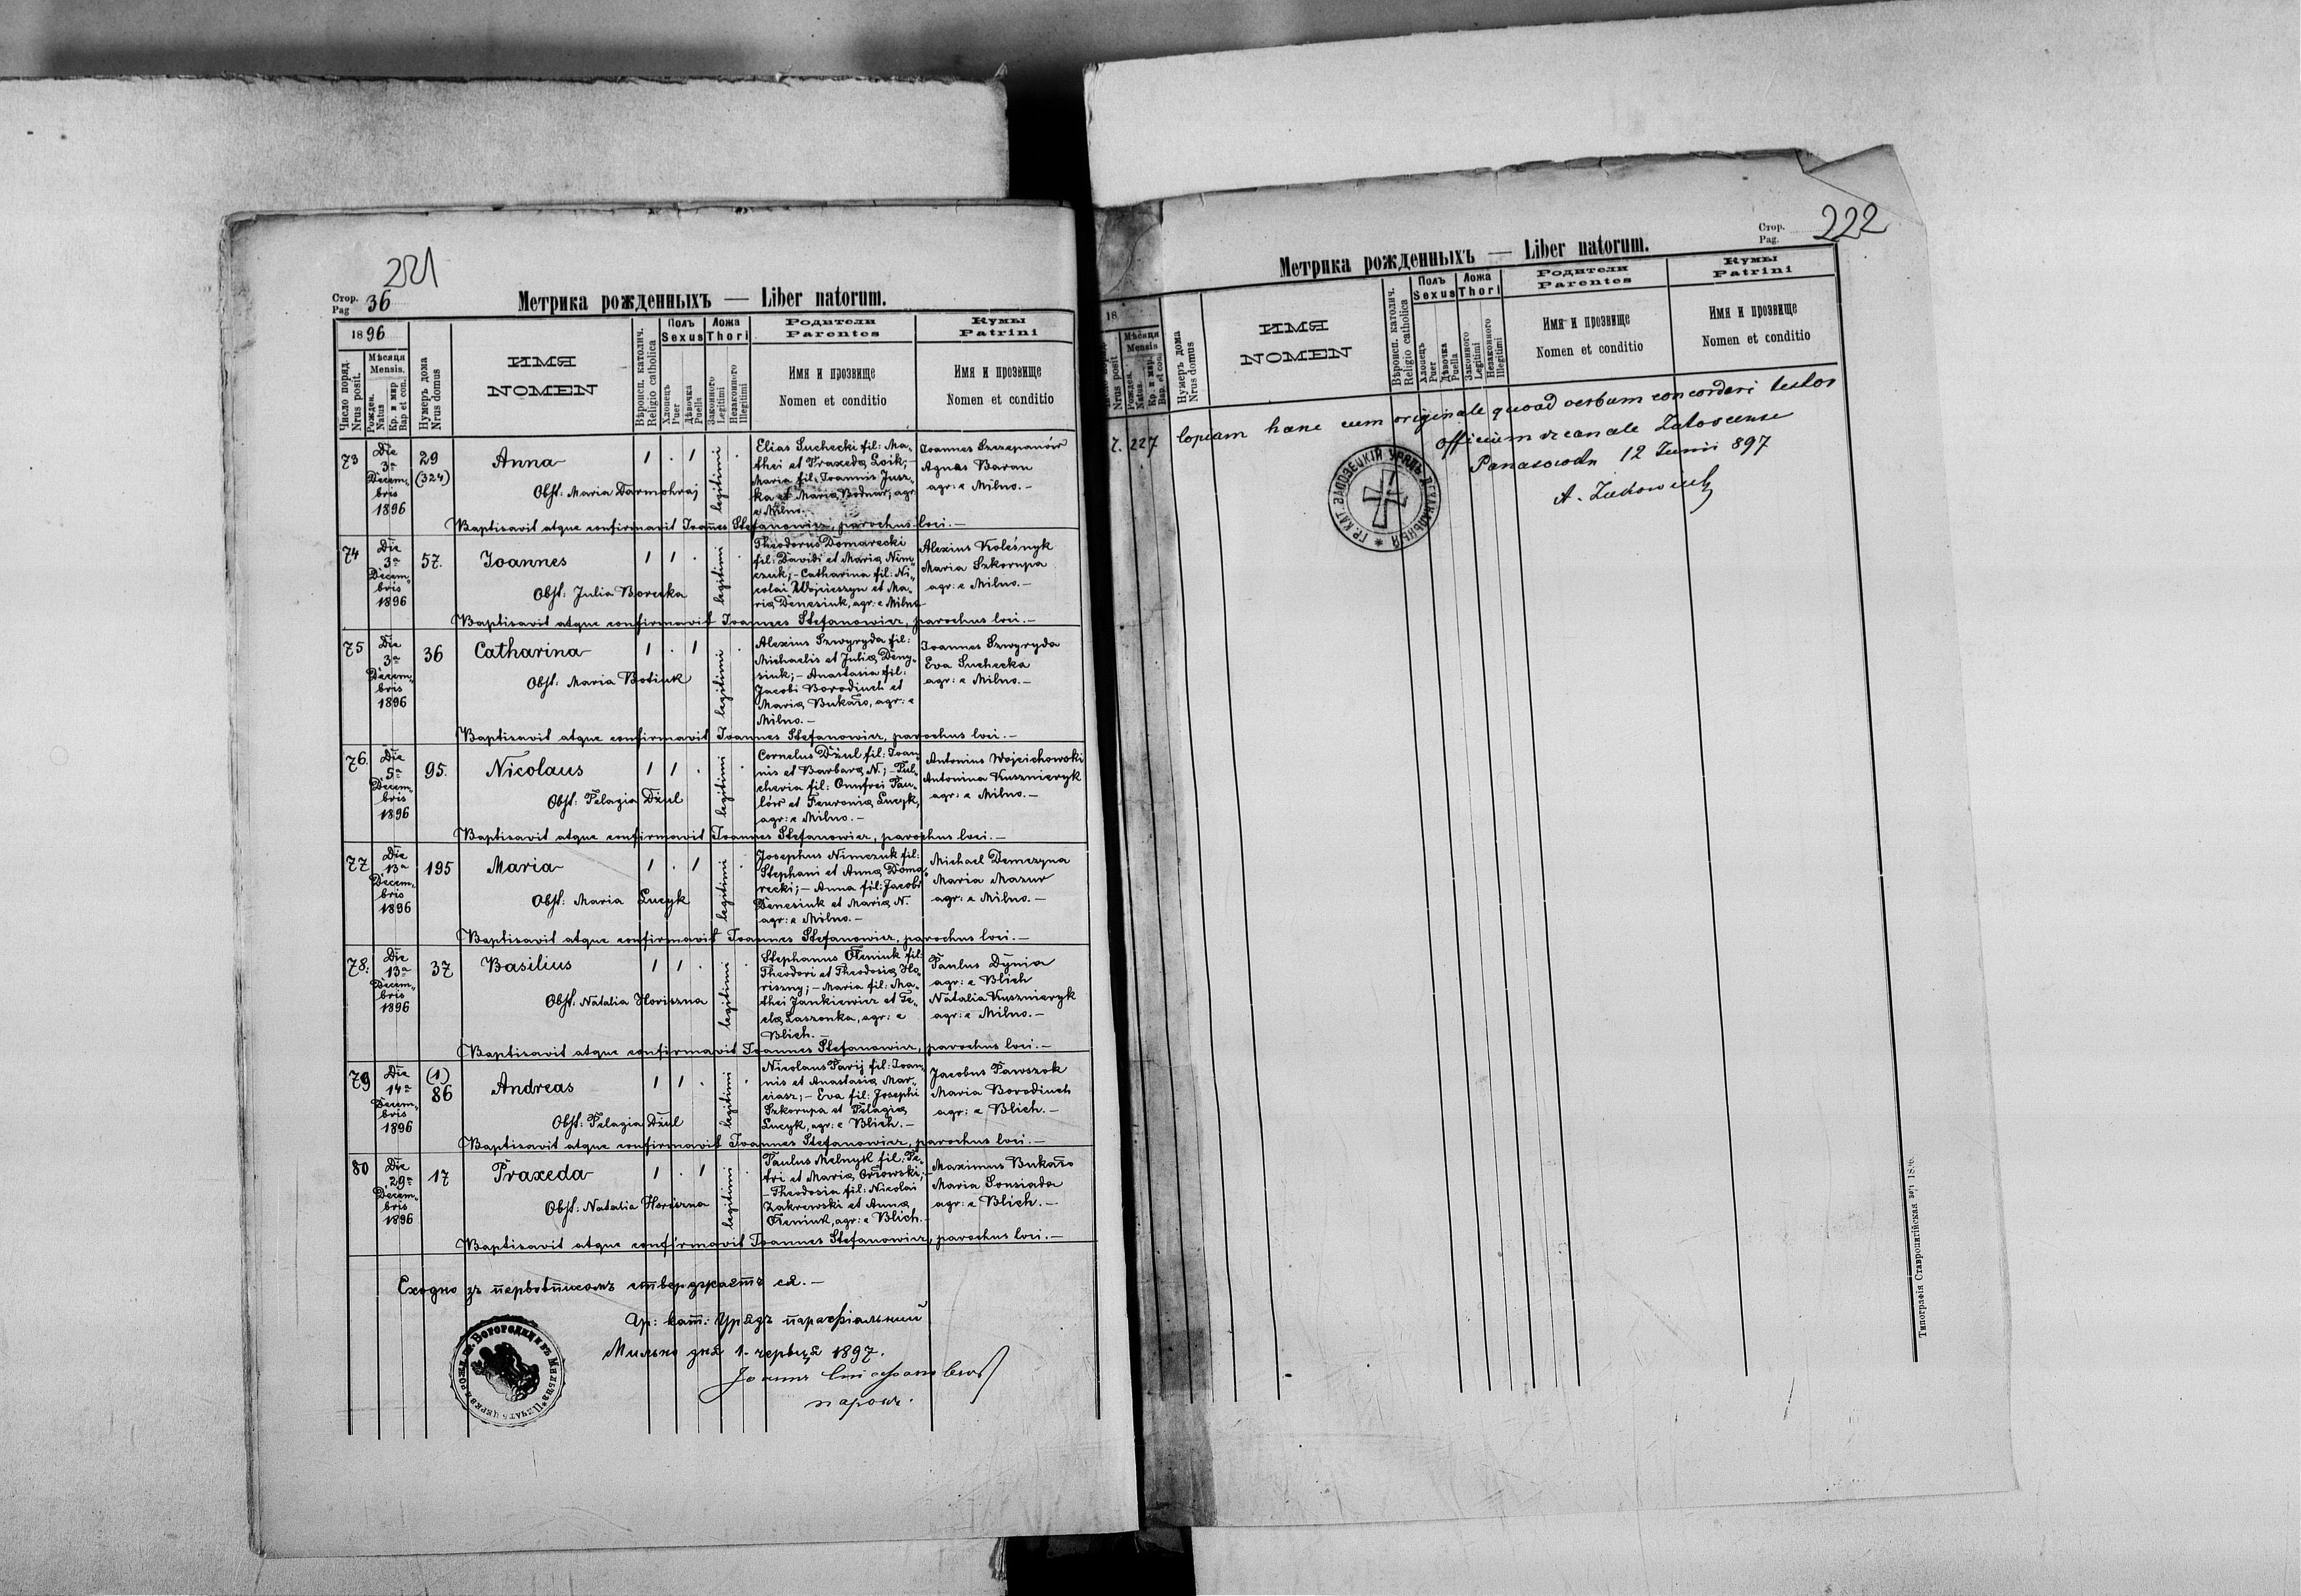 221
Стор.
Pag 36
Метрика рожденныхъ — Liber natorum.
1896
Число поряд.
Nrus posit.
Мѣсяця
Mensis.
Рожден.
Natus
Кр. и мир.
Bap. et con.
Нумеръ дома
Nrus domus
ИМЯ
NOMEN
Вѣроисп. католич.
Religio catholica
Полъ
Sexus
Хлопецъ
Puer
Дѣвочка
Puella
Ложа
Thori
Законного
Legitimi
Незаконного
Illegitimi
Родители
Parentes
Имя и прозвище
Nomen et conditio
Кумы
Patrini
Имя и прозвище
Nomen et conditio
73
Die
3ª
Decem-
bris
1896
29
(324)
Anna
Obst: Maria Darmohraj
1 . 1
legitimi
Elias Suchecki fil: Ma-
thei et Praxeda Loik;
Maria fil: Joannis Jusz-
ka et Maria Bodnar, agr:
e Milno.
Joannes Szczepanów
Agnes Baran
agr: e Milno. —
Baptisavit atque confirmavit Joannes Stefanowicz, parochus loci. —
74
Die
3ª
Decem-
bris
1896
57.
Joannes
Obst: Julia Borecka
1 1 .
legitimi
Theodorus Domarecki
fil: Davidi et Maria Nim-
czuk; — Catharina fil: Ni-
colai Wojcieszyn et Ma-
ria Denesiuk, agr: e Milno
Alexius Koleśnyk
Maria Szkorupa
agr: e Milno. —
Baptisavit atque confirmavit Joannes Stefanowicz, parochus loci. —
75
Die
3ª
Decem-
bris
1896
36
Catharina
Obst: Maria Botiuk
1 . 1
legitimi
Alexius Szwyryda fil:
Michaelis et Julia Deny-
siuk; — Anastasia fil:
Jacobi Borodiuch et
Maria Bukało, agr: e
Milno. —
Joannes Szwyryda
Eva Suchecka
agr: e Milno. —
Baptisavit atque confirmavit Joannes Stefanowicz, parochus loci. —
76.
Die
5ª
Decem-
bris
1896
95.
Nicolaus
Obst: Pelagia Dżul
1 1 .
legitimi
Cornelus Dżul fil: Joan-
nis et Barbara N.; — Pul-
cheria fil: Onufrei Pau-
lów et Fevronia Lucyk,
agr: e Milno. —
Antonius Wojcichowski
Antonina Kusznieryk
agr: e Milno. —
Baptisavit atque confirmavit Joannes Stefanowicz, parochus loci. —
77
Die
13ª
Decem-
bris
1896
195
Maria
Obst: Maria Lucyk
1 . 1
legitimi
Josephus Nimczuk fil:
Stephani et Anna Doma-
recki; — Anna fil: Jacobi
Denesiuk et Maria N.
agr: e Milno. —
Michael Demczyna
Maria Mazur
agr: e Milno. —
Baptisavit atque confirmavit Joannes Stefanowicz, parochus loci. —
78.
Die
13ª
Decem-
bris
1896
37
Basilius
Obst: Natalia Horiszna
1 1 .
legitimi
Stephanus Ołeniuk fil:
Theodori et Theodosia Ho-
riszny; — Maria fil: Ma-
thei Jankiewicz et Te-
cla Laszonka, agr: e
Blich. —
Paulus Dynia
agr: e Blich
Natalia Kusznieryk
agr: e Milno. —
Baptisavit atque confirmavit Joannes Stefanowicz, parochus loci. —
79
Die
14ª
Decem-
bris
1896
(1)
86
Andreas
Obst: Pelagia Dżul
1 1 .
legitimi
Nicolaus Parij fil: Joan-
nis et Anastasia Mar-
ciasz; — Eva fil: Josephi
Szkorupa et Pelagia
Lucyk, agr: e Blich. —
Jacobus Pawszok
Maria Borodiuch
agr: e Blich. —
Baptisavit atque confirmavit Joannes Stefanowicz, parochus loci. —
80
Die
29ª
Decem-
bris
1896
17
Praxeda
Obst: Natalia Horiszna
1 . 1
legitimi
Paulus Melnyk fil: Pe-
tri et Maria Orłowski;
— Theodosia fil: Nicolai
Zakrewski et Anna
Ołeniuk, agr: e Blich. —
Maximus Bukało
Maria Sonsiada
agr: e Blich. —
Baptisavit atque confirmavit Joannes Stefanowicz, parochus loci. —
Сходно зъ первотписомъ стверджаєтъ ся. —
Гр: кат: Урядъ парохіяльный
Мильно дня 1. червця 1897.
парохъ.
222
Стор.
Pag.
Метрика рожденныхъ — Liber natorum.
18
Nrus posit
Мѣсяця
Mensis
Рожден.
Natus.
Кр. и мир.
Bap. et con.
Нумеръ дома
Nrus domus
ИМЯ
NOMEN
Вѣроисп. католич.
Religio catholica
Полъ
Sexus
Хлопецъ
Puer
Дѣвочка
Puella
Ложа
Thori
Законного
Legitimi
Незаконного
Illegitimi
Родители
Parentes
Имя и прозвище
Nomen et conditio
Кумы
Patrini
Имя и прозвище
Nomen et conditio
227
Copiam hanc cum originale quoad verbum concordari testor
Officium decanale Zaloscense
12 Junii 897
ГР. КАТ. ЗАЛОЗЕЦКІЙ УРЯДЪ ДЕКАНАЛЬНЫЙ
Типографія Ставропигійская